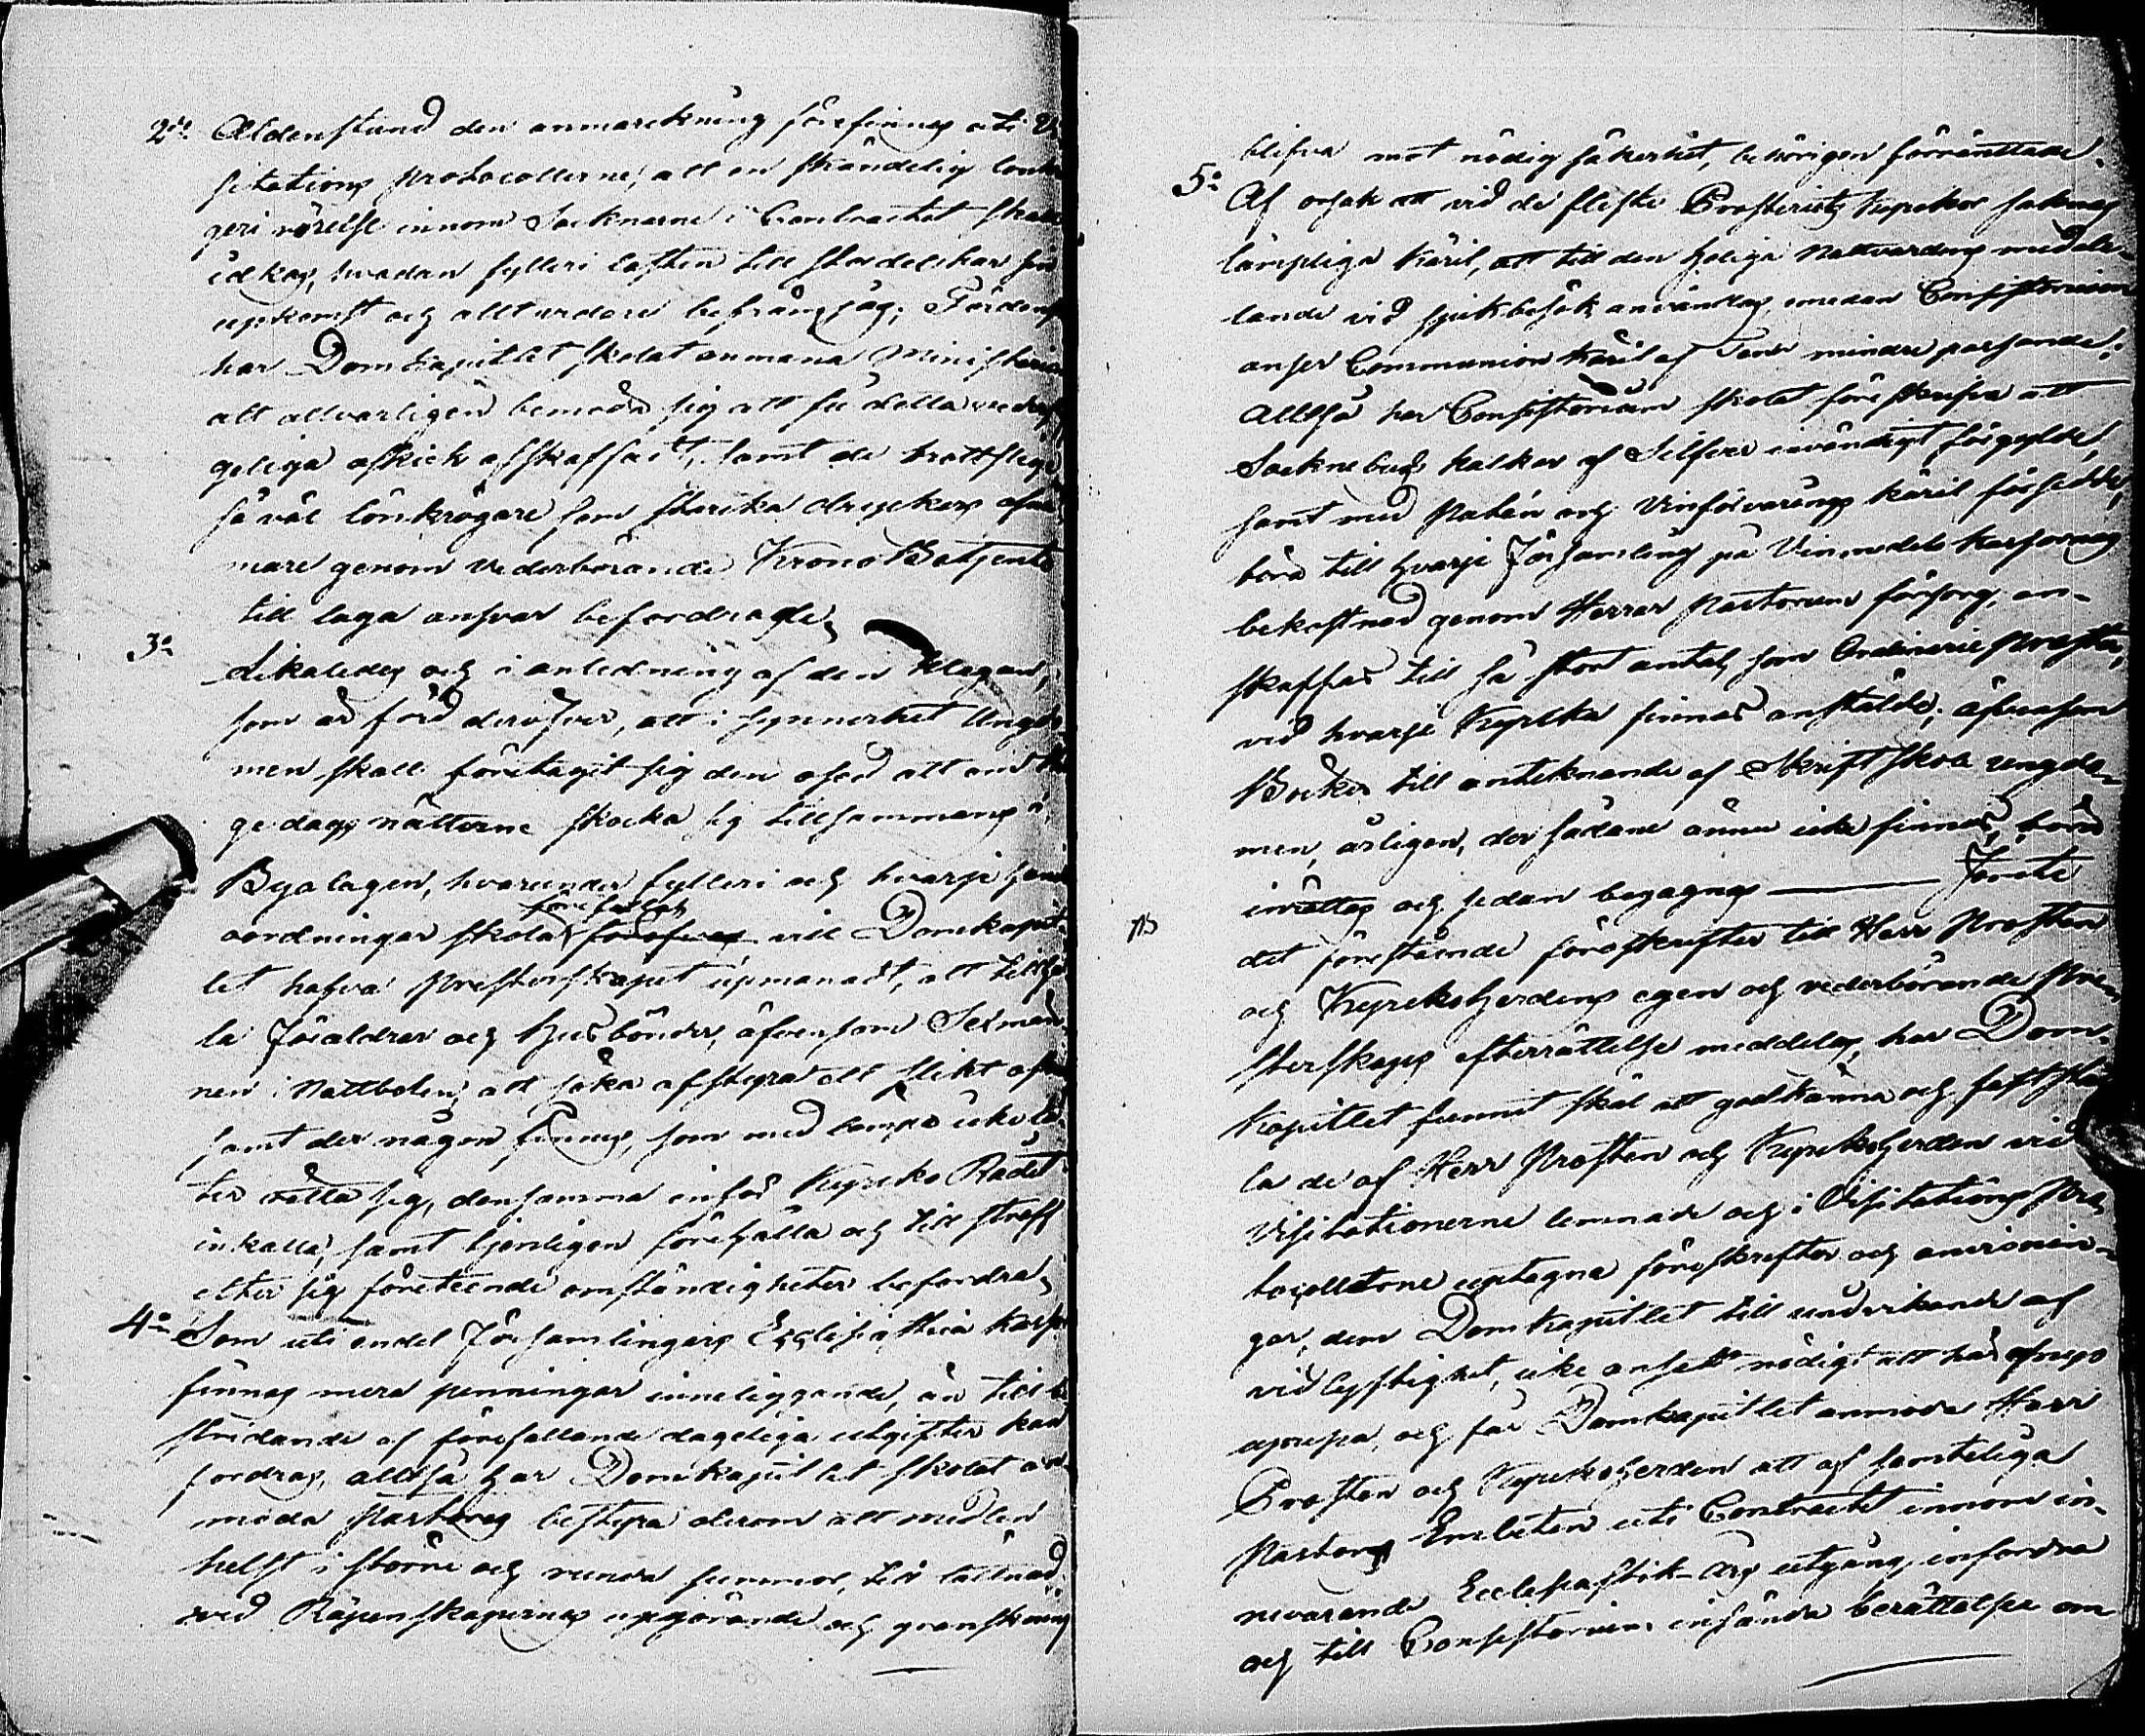 2:o Aldenstund den anmärckning förefinnes uti Vi
sitations protocollerne, att en skändelig lönkrö
geri rörelse innom Socknarne i Contractet skall
idkas, hvadan fylleri lasten till stor del har sin
upkomst och alltvidare befrämjas; Fördenskull
har Domkapitlet skolat anmana Ministerium
att allvarligen bemöda sig att få detta
geliga ofskick afskaffadt, samt de brottslige
så väl lönkrögare som starcka dryckers
mare genom vederbörande Krono Betjente
till laga ansvar befordrade,
3:o Likaledes och i anledning af den klagan,
som är förd deröfver, att i synnerhet Ungdo
men skall företagit sig den osed att om
gedags nätterne skocka sig tillsammans i
Byalagen, hvarunder fylleri och hvarje handa
oordningar skola förefallas vill Domkapit
let hafva Presterskapet upmanadt, att tillhål
la Föräldrar och Husbönder, äfvensom Sexmän
nen i Nattbolen; att söka afstyra allt slikt
samt der någon finnes, som med lämpa icke lå
ter rätta sig, densamma inför Kyrcko Rådet
inkalla, samt tjenligen förehålla och till straff
efter sig företeende omständigheter befordra,
4:o Som uti endel Församlingars Ecclesiastica kassor
finnes mera penningar inneliggande, än till be
stridande af förefallande dageliga utgifter kan
fordras, alltså har Domkapitlet skolat an
moda Pastores bestyra derom att medlen
helst i större och runda summor, till lättnad
vid Räkenskapernas uppgörande och granskning
blifva mot nödig säkerhet, behörigen förräntade.
5:o Af orsak att vid de fleste Prosteriets kyrckor saknas
lämpliga käril, att till den heliga Nattvardens meddel-
lande vid sjukbesök användas, emedan Consistorium
anser Communion käril af Tenn mindre passande;
Alltså har Consistorium skolat föreskrifva att
Socknebuds kalkar af Silfver invändigt förgyldte,
samt med Patén och Vinförvarings käril försedde,
böra till hvarje Församling på Vinmedels kassornas
bekostnad genom Herrar Pastorum försorg, an-
skaffas till så stort antal, som Ordinarie Prester,
vid hvarje Kyrcka finnas anstälde; äfvensom
Böcker till anteknande af Skriftskole ungdo-
men, årligen, der sådane ännu icke finnas, böra
inrättas och sedan begagnas ——— Jemte
NB det förestående föreskrifter till Herr Prosten
och Kyrckoherdens egen och vederbörande Pre-
sterskaps efterrättelse meddelas, har Dom-
kapitlet funnit skäl att godkänna och faststäl
la de af Herr Prosten och Kyrckoherden vid
Visitationerne lemnade och i Visitations Pro
tocollerne uptagne föreskrifter och anvisnin-
gar, dem Domkapitlet till undvikande af
vidlyftighet, icke ansett nödigt att här ofvan
uprepa, och får Domkapitlet anmoda Herr
Prosten och Kyrckoherden att af samtelige
Pastors Embeten uti Contractet innom in-
nevarande Ecclesiastik-års utgång, infordra
och till Consistorium insända berättelse om